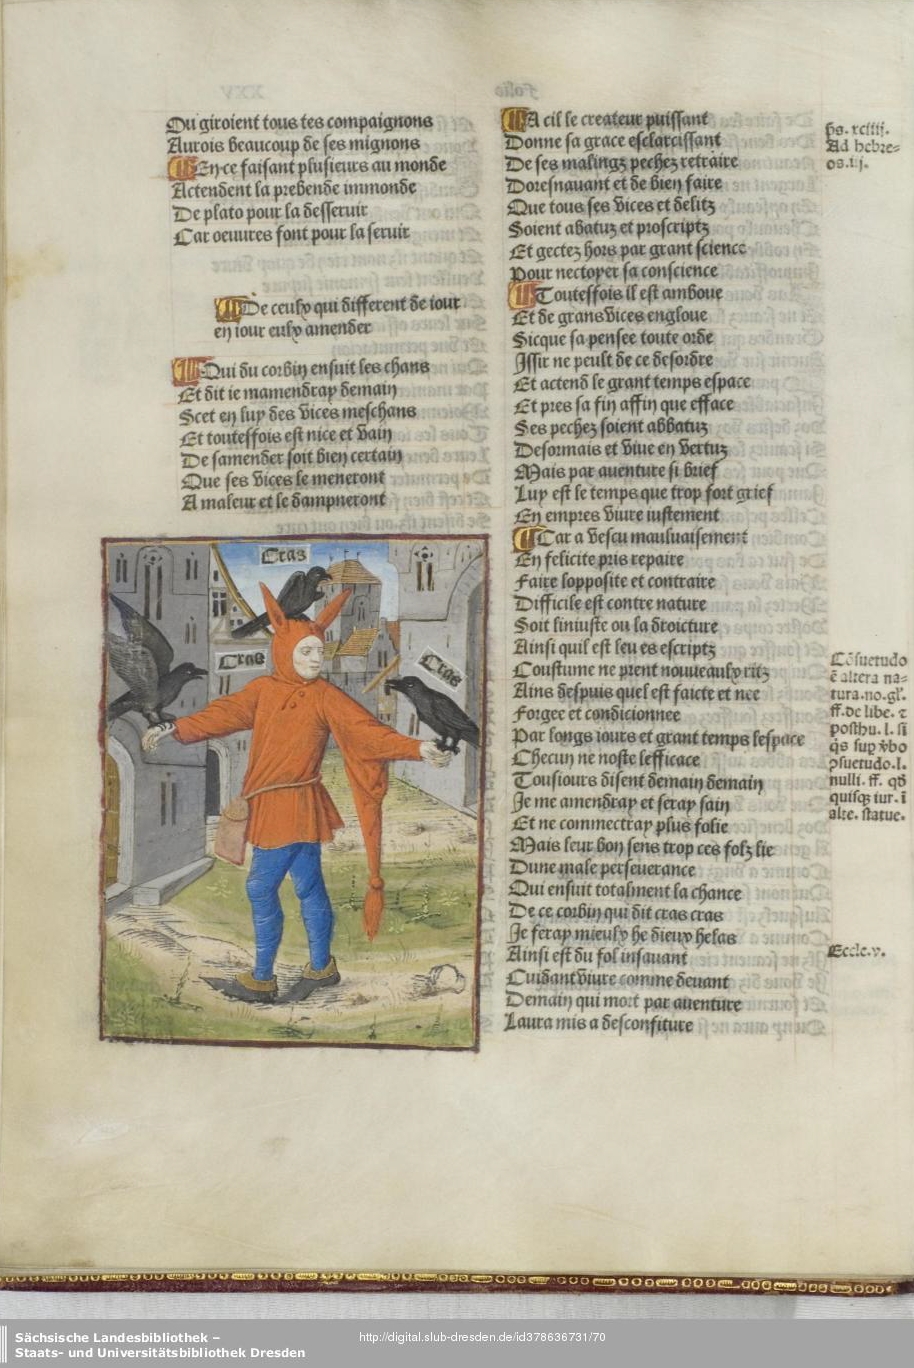 Ou giroient tous tes compaignons
Aurois beaucoup de ses mignons
En ce faisant plusieurs au monde
Actendent la prebende immonde
De plato pour la desseruir
Car oeuures font pour la seruir
De ceulx qui different de iour
en iour eulx amender
Qui du corbin ensuit les chans
Et dit ie mamendray demain
Scet en luy des vices meschans
Et toutesfois est nice et vain
De samender soit bien certain
Que ses vices le meneront
A maleur et le dampneront
Cras
Cras
Cras
A cil le createur puissant
Donne sa grace esclarcissant
De ses malingz pechez retraire
Doresnauant et de bien faire
Que tous ses vices et delitz
Soient abatuz et proscriptz
Et gectez hors par grant science
Pour nectoyer sa conscience
Toutesfois il est amboue
Et de grans vices engloue
Sicque sa pensee toute orde
Issir ne peult de ce desordre
Et actend le grant temps espace
Et pres sa fin affin que efface
Ses pechez soient abbatuz
Desormais et viue en vertuz
Mais par auenture si brief
Luy est le temps que trop fort grief
En empres viure iustement
Car a vescu mauluaisement
En felicite pris repaire
Faire lopposite et contraire
Difficile est contre nature
Soit liniuste ou la droicture
Ainsi quil est leu es escriptz
Coustume ne prent nouueaulx ritz
Ains despuis quel est faicte et nee
Forgee et condicionnee
Par longs iours et grant temps lespace
Checun ne noste lefficace
Tousiours disent demain demain
Je me amendray et seray sain
Et ne commectray plus folie
Mais leur bon sens trop ces folz lie
Dune male perseuerance
Qui ensuit totalment la chance
De ce corbin qui dit cras cras
Je feray mieulx he dieux helas
Ainsi est du fol insauant
Cuidant viure comme deuant
Demain qui mort par auenture
Laura mis a desconfiture
p̄s. xciiij.
Ad hebre=
os. iij.
Cōsuetudo
ē altera na=
tura. no. gl'.
ff. de libe. ⁊
posthu. l. si
q̄s sup v̄bo
ꝯsuetudo. l.
nulli. ff. qđ
quisqꝫ iur. ī
alte. statue.
Eccle. v.
Sächsische Landesbibliothek –
Staats- und Universitätsbibliothek Dresden
http://digital.slub-dresden.de/id378636731/70